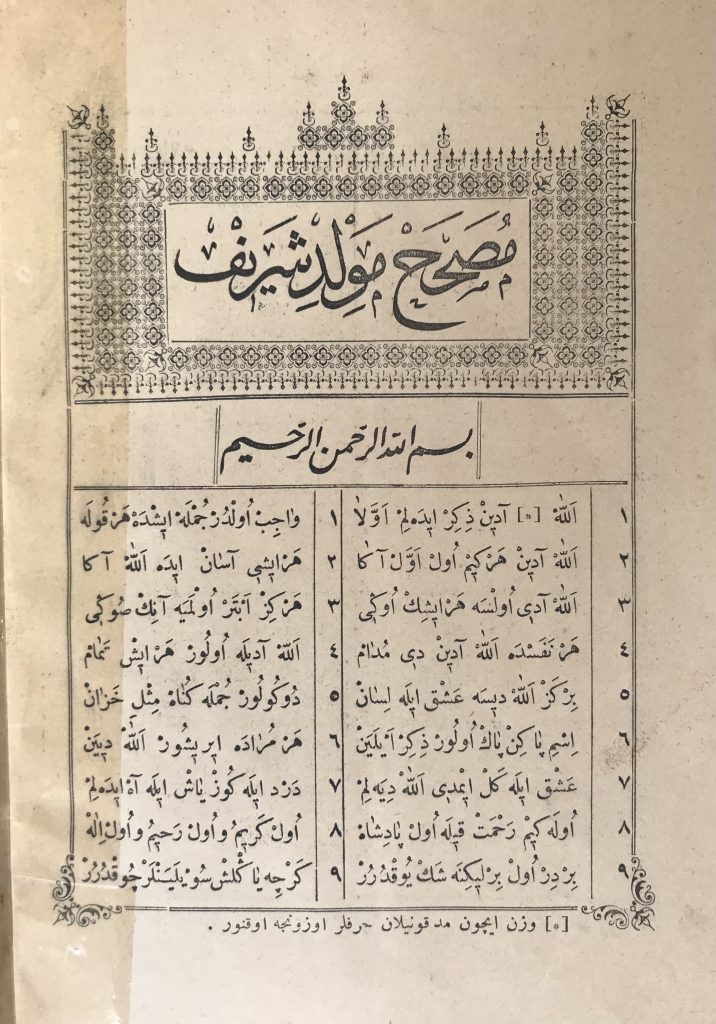 مُصَحَّحْ مَوْلِدِ شَرِيفْ
بسم الله الرحمن الرحيم
١ اَللّٰهْ [*] آدِينْ ذِكِرْ ايدَه لِمْ اَوَّلَا ١ وَاجِبْ اُولْدُرْ جُمْلَه ايشْدَهْ هَرْ قُولَه
٢ اَللّٰهْ آدِينْ هَرْ كِيمْ اُولْ اَوَّلْ آ كَا ٢ هَرْ ايشِي آسَانْ ايدَه اَللّٰهْ آ كَا
٣ اَللّٰهْ آدِى اُولْسَه هَرْ ايشِكْ اُوكِى ٣ هَرْ كِزْ اَبْتَرْ اُولْمَيَه آنِكْ صُوكِى
٤ هَرْ نَفَسْدَه اَللّٰهْ آدِينْ دِى مُدَامْ ٤ اَللّٰهْ آدِيلَه اُولُورْ هَرْ ايشْ تَمَامْ
٥ بِرْ كَزْ اَللّٰهْ دِيسَه عَشْقِ ايلَه لِسَانْ ٥ دُوكُولُورْ جُمْلَه كُنَاهْ مِثْلِ خَزَانْ
٦ اِسْمِ پَاكِنْ پَاكْ اُولُورْ ذِكِرْ اَيْلَيَنْ ٦ هَرْ مُرَادَه ايرِيشُورْ اَللّٰهْ دِيَيَنْ
٧ عَشْقِ ايلَه كَلْ ايمْدِى اَللّٰهْ دِيَه لِمْ ٧ دَرْدِ ايلَه كُوزْ يَاشِ ايلَه آهْ ايدَه لِمْ
٨ اُولَه كِيمْ رَحْمَتْ قِيلَه اُولْ پَادِشَاهْ ٨ اُولْ كَرِيمُ و اُولْ رَحِيمُ و اُولْ اِلٰهْ
٩ بِرْ دِرْ اُولْ بِرْلِيكِنَه شَكْ يُوقْدُرُرْ ٩ كَرْ چِه يَا كْلِشْ سُويلَيَنْلَرْ چُوقْدُرُرْ
[*] وزن ايچون مد قونيلان حرفلر اوزونجه اوقنور .